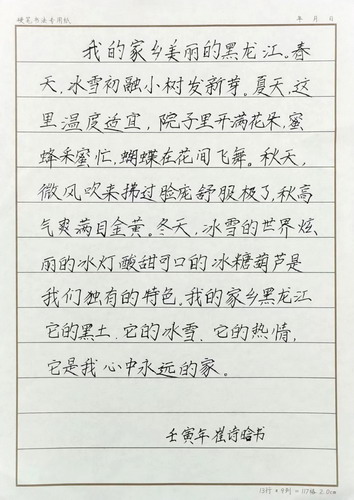 硬笔书法专用纸 年 月 日
我的家乡美丽的黑龙江。春
天,冰雪初融小树发新芽。夏天,这
里温度适宜,院子里开满花朵,蜜
蜂采蜜忙,蝴蝶在花间飞舞。秋天,
微风吹来拂过脸庞舒服极了,秋高
气爽满目金黄。冬天,冰雪的世界炫
丽的冰灯酸甜可口的冰糖葫芦是
我们独有的特色。我的家乡黑龙江
它的黑土、它的冰雪、它的热情,
它是我心中永远的家。
壬寅年崔诗晗书
13行×9列=117格 2.0cm